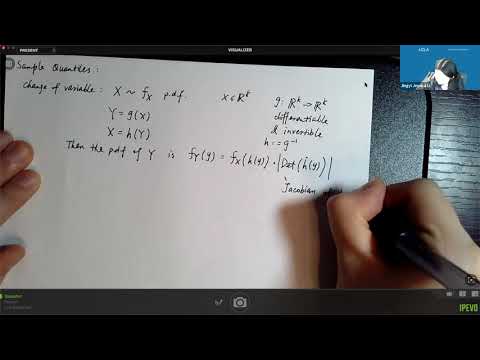 PRESENT
VISUALIZER
UCLA
Sample Quantiles :
change of variable : X ~ f_X p.d.f. X ∈ ℝ^k g: ℝ^k → ℝ^k
differentiable
Y = g(X)
& invertible
X = h(Y)
h := g^-1
Then the pdf of Y is f_Y(y) = f_X(h(y)) · |Det(ḣ(y))|
Jacobian
IPEVO